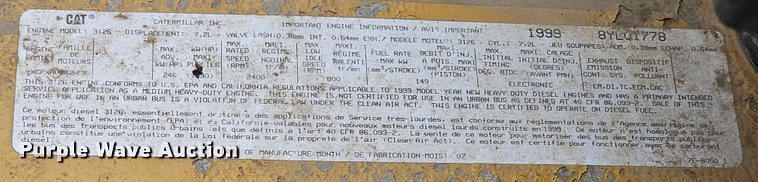 CAT CATERPILLAR INC. IMPORTANT ENGINE INFORMATION / AVIS IMPORTANT 1999 8YL01778
ENGINE MODEL: 3126 DISPLACEMENT: 7.2L VALVE LASH: 0.38mm INT. 0.64mm EXH./ MODELE MOTEUR: 3126 CYL.: 7.2L JEU SOUPAPES: ADM. 0.38mm ECHAP. 0.64mm
ENGINE FAMILY FAMILLE DE MOTEURS
MAX. kW(HP)
MAX. RATED SPEED REGIME NOMINAL
LOW IDLE REGIME RALENTI
FUEL RATE DEBIT D'INJ. MAX kW A PUIS. MAXI (mm³/STROKE)/(mm³/COUP PISTON)
INITIAL INJ. TIMING CALAGE INITIAL D'INJ. DEG. BTDC (AVANT PMH)
EXHAUST EMISSION DISPOSITIF ANTI-
246 2400 800 149 ELECTRONIC EM,DI,TC,ECM,CAC
THIS 3126 ENGINE CONFORMS TO U.S. EPA AND CALIFORNIA REGULATIONS APPLICABLE TO 1999 MODEL YEAR NEW HEAVY DUTY DIESEL ENGINES AND HAS A PRIMARY INTENDED
SERVICE APPLICATION AS A MEDIUM HEAVY-DUTY ENGINE. THIS ENGINE IS NOT CERTIFIED FOR USE IN AN URBAN BUS AS DEFINED AT 40 CFR 86.093-2. SALE OF THIS
ENGINE FOR USE IN AN URBAN BUS IS A VIOLATION OF FEDERAL LAW UNDER THE CLEAN AIR ACT. THIS ENGINE IS CERTIFIED TO OPERATE ON DIESEL FUEL.
Ce moteur diesel 3126, essentiellement destine a des applications de Service tres-lourdes, est conforme aux reglementations de l'Agence americaine de
protection de l'environnement (EPA) et de Californie valables pour nouveaux moteurs diesel lourds construits en 1999. Ce moteur n'est homologue pas pour
les bus des transports publics urbains tels que definis a l'art 40 CFR 86.093-2. La vente de ce moteur pour motoriser des bus des transports publics
urbains constitue une violation de la Loi federale sur la proprete de l'air (Clean Air Act). Ce moteur est certifie pour fonctionner avec de carburant
diesel.
DE MANUFACTURE-MONTH / DE FABRICATION-MOIS: 07 7E-8050 1
Purple Wave Auction